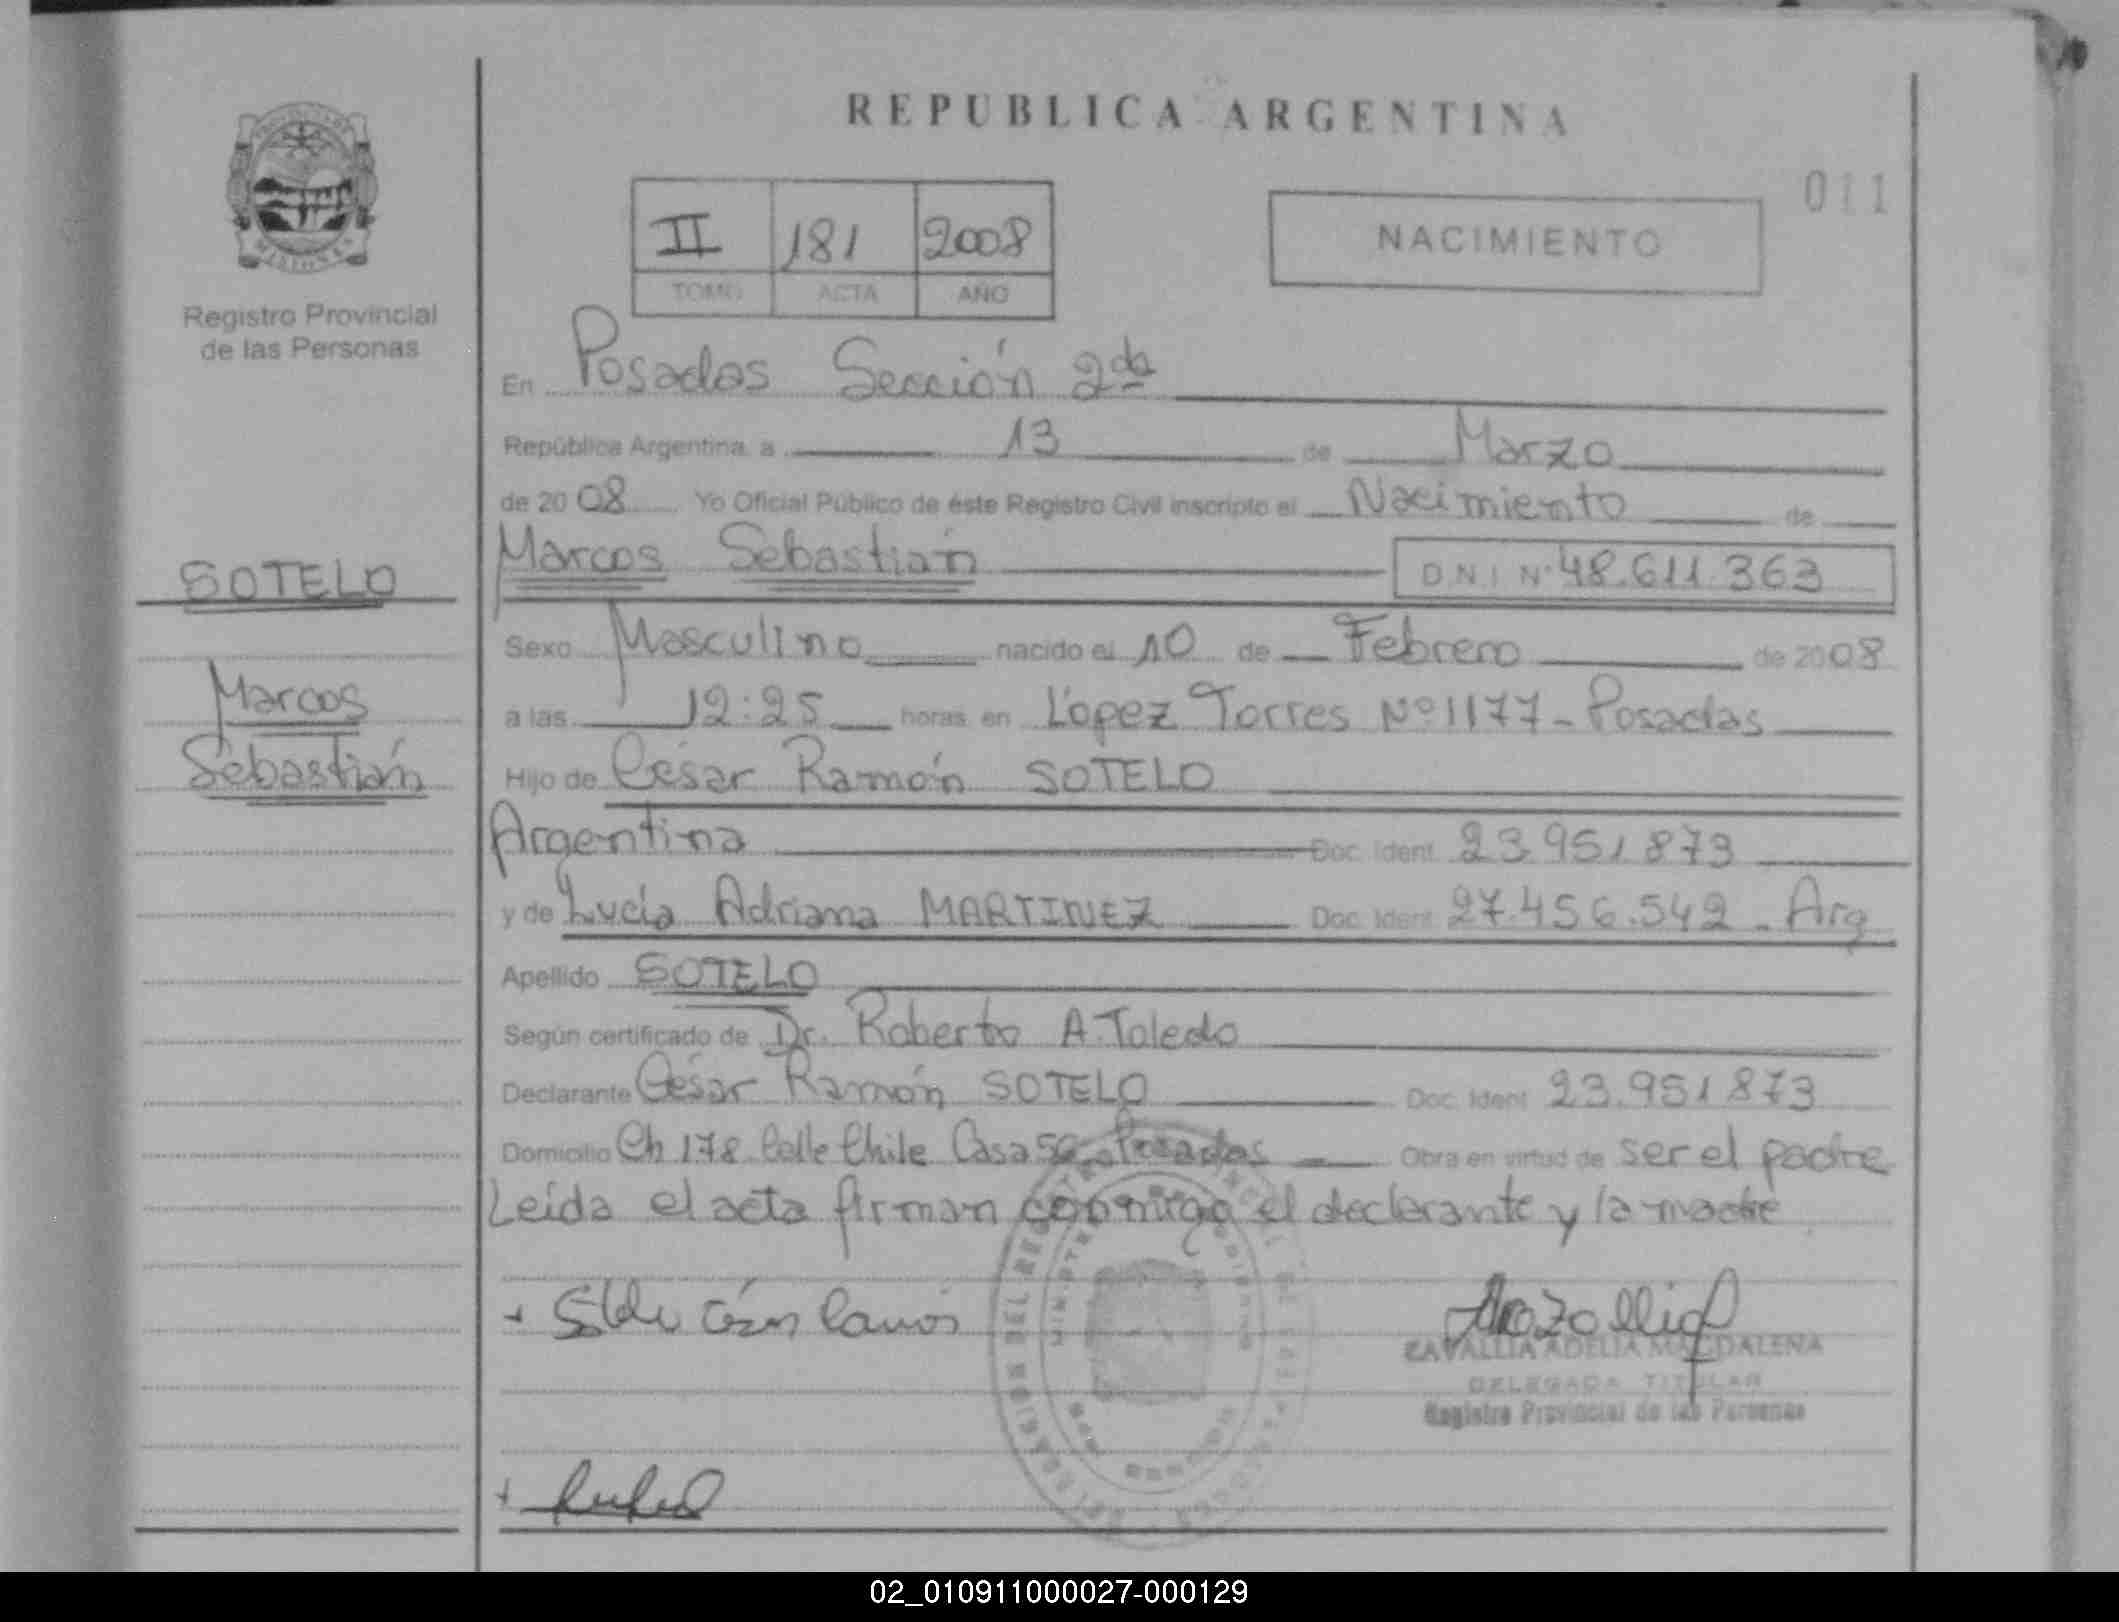 REPUBLICA ARGENTINA
011
II 181 2008
TOMO ACTA AÑO
NACIMIENTO
MISIONES
Registro Provincial
de las Personas
En Posadas Sección 2da
República Argentina, a 13 de Marzo
de 2008 Yo Oficial Público de éste Registro Civil inscripto el Nacimiento de
Marcos Sebastián D.N.I Nº 48.611.363
SOTELO
Marcos
Sebastián
Sexo Masculino nacido el 10 de Febrero de 2008
a las 12:25 horas en López Torres Nº 1177 - Posadas
Hijo de César Ramón SOTELO
Argentina Doc. Ident. 23.951.873
y de Lucía Adriana MARTINEZ Doc. Ident. 27.456.542 - Arg
Apellido SOTELO
Según certificado de Dr. Roberto A. Toledo
Declarante César Ramón SOTELO Doc. Ident. 23.951.873
Domicilio Ch 178 Calle Chile Casa Posadas Obra en virtud de ser el padre
Leída el acta firman conmigo el declarante y la madre
ZAVALLIA ADELIA MAGDALENA
DELEGADA TITULAR
Registro Provincial de las Personas
02_010911000027-000129